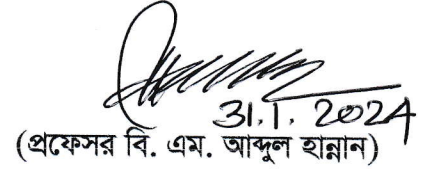 31.1.2024
(প্রফেসর বি. এম. আব্দুল হান্নান)